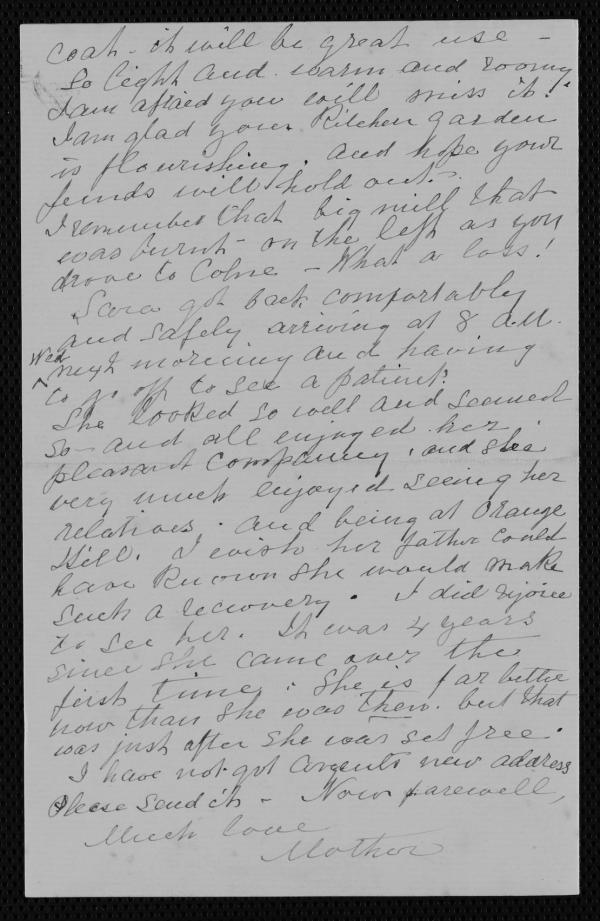 coat - it will be great use -
So light and warm and roomy
I am afraid you will miss it!
I am glad your Kitchen garden
is flourishing. and hope your
funds will hold out. -
I remember that big mill that
was burnt - on the left as you
drove to Colne - What a loss!
Sara got back comfortably
and safely arriving at 8 a.m.
Wed
next morning and having
to go off to see a patient!
She looked so well and seemed
so - and all enjoyed her
pleasant company, and she
very much enjoyed seeing her
relations. and being at Orange
Hill. I wish her father could
have Known She would make
such a recovery. I did rejoice
to see her. It was 4 years
since She came over the
first time. She is far better
now than She was then. but that
was just after She was set free.
I have not got new address
Please Send it - Now farewell,
Much love
Mother